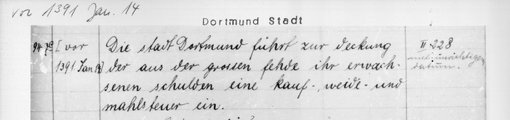 vor 1391 Jan. 14
Dortmund Stadt
I vor Die stadt Dortmund führt zur deckung II 228
1391 Jan 14 der aus der grossen fehde ihr erwach-
datum.
senen schulden eine kauf-, weide- und
mahlsteuer ein.